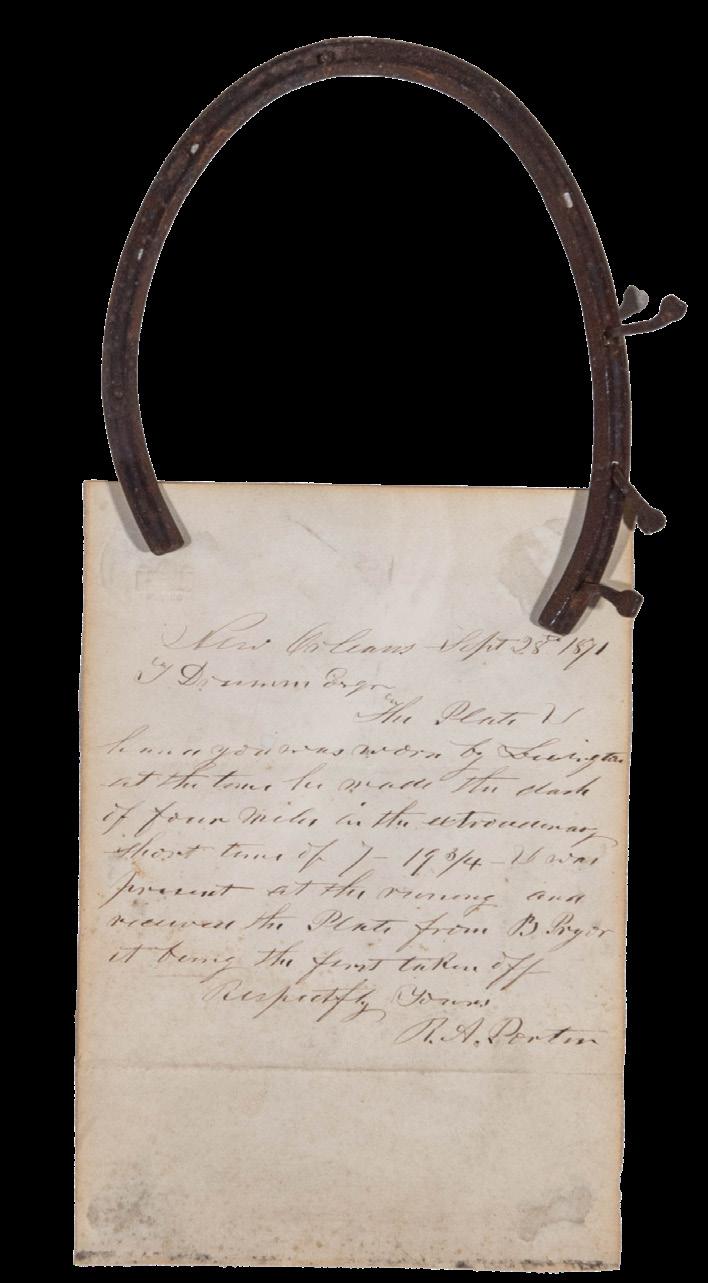 New Orleans Sept 28th 1871
T Drumm Esqr
The Plate I
hand you was worn by Lexington
at the time he made the dash
of four miles in the extroudenary
short time of 7 - 19 3/4 - I was
present at the running and
received the Plate from B Pryor
it being the first taken off
Respectfly Yours
R. A. Porter